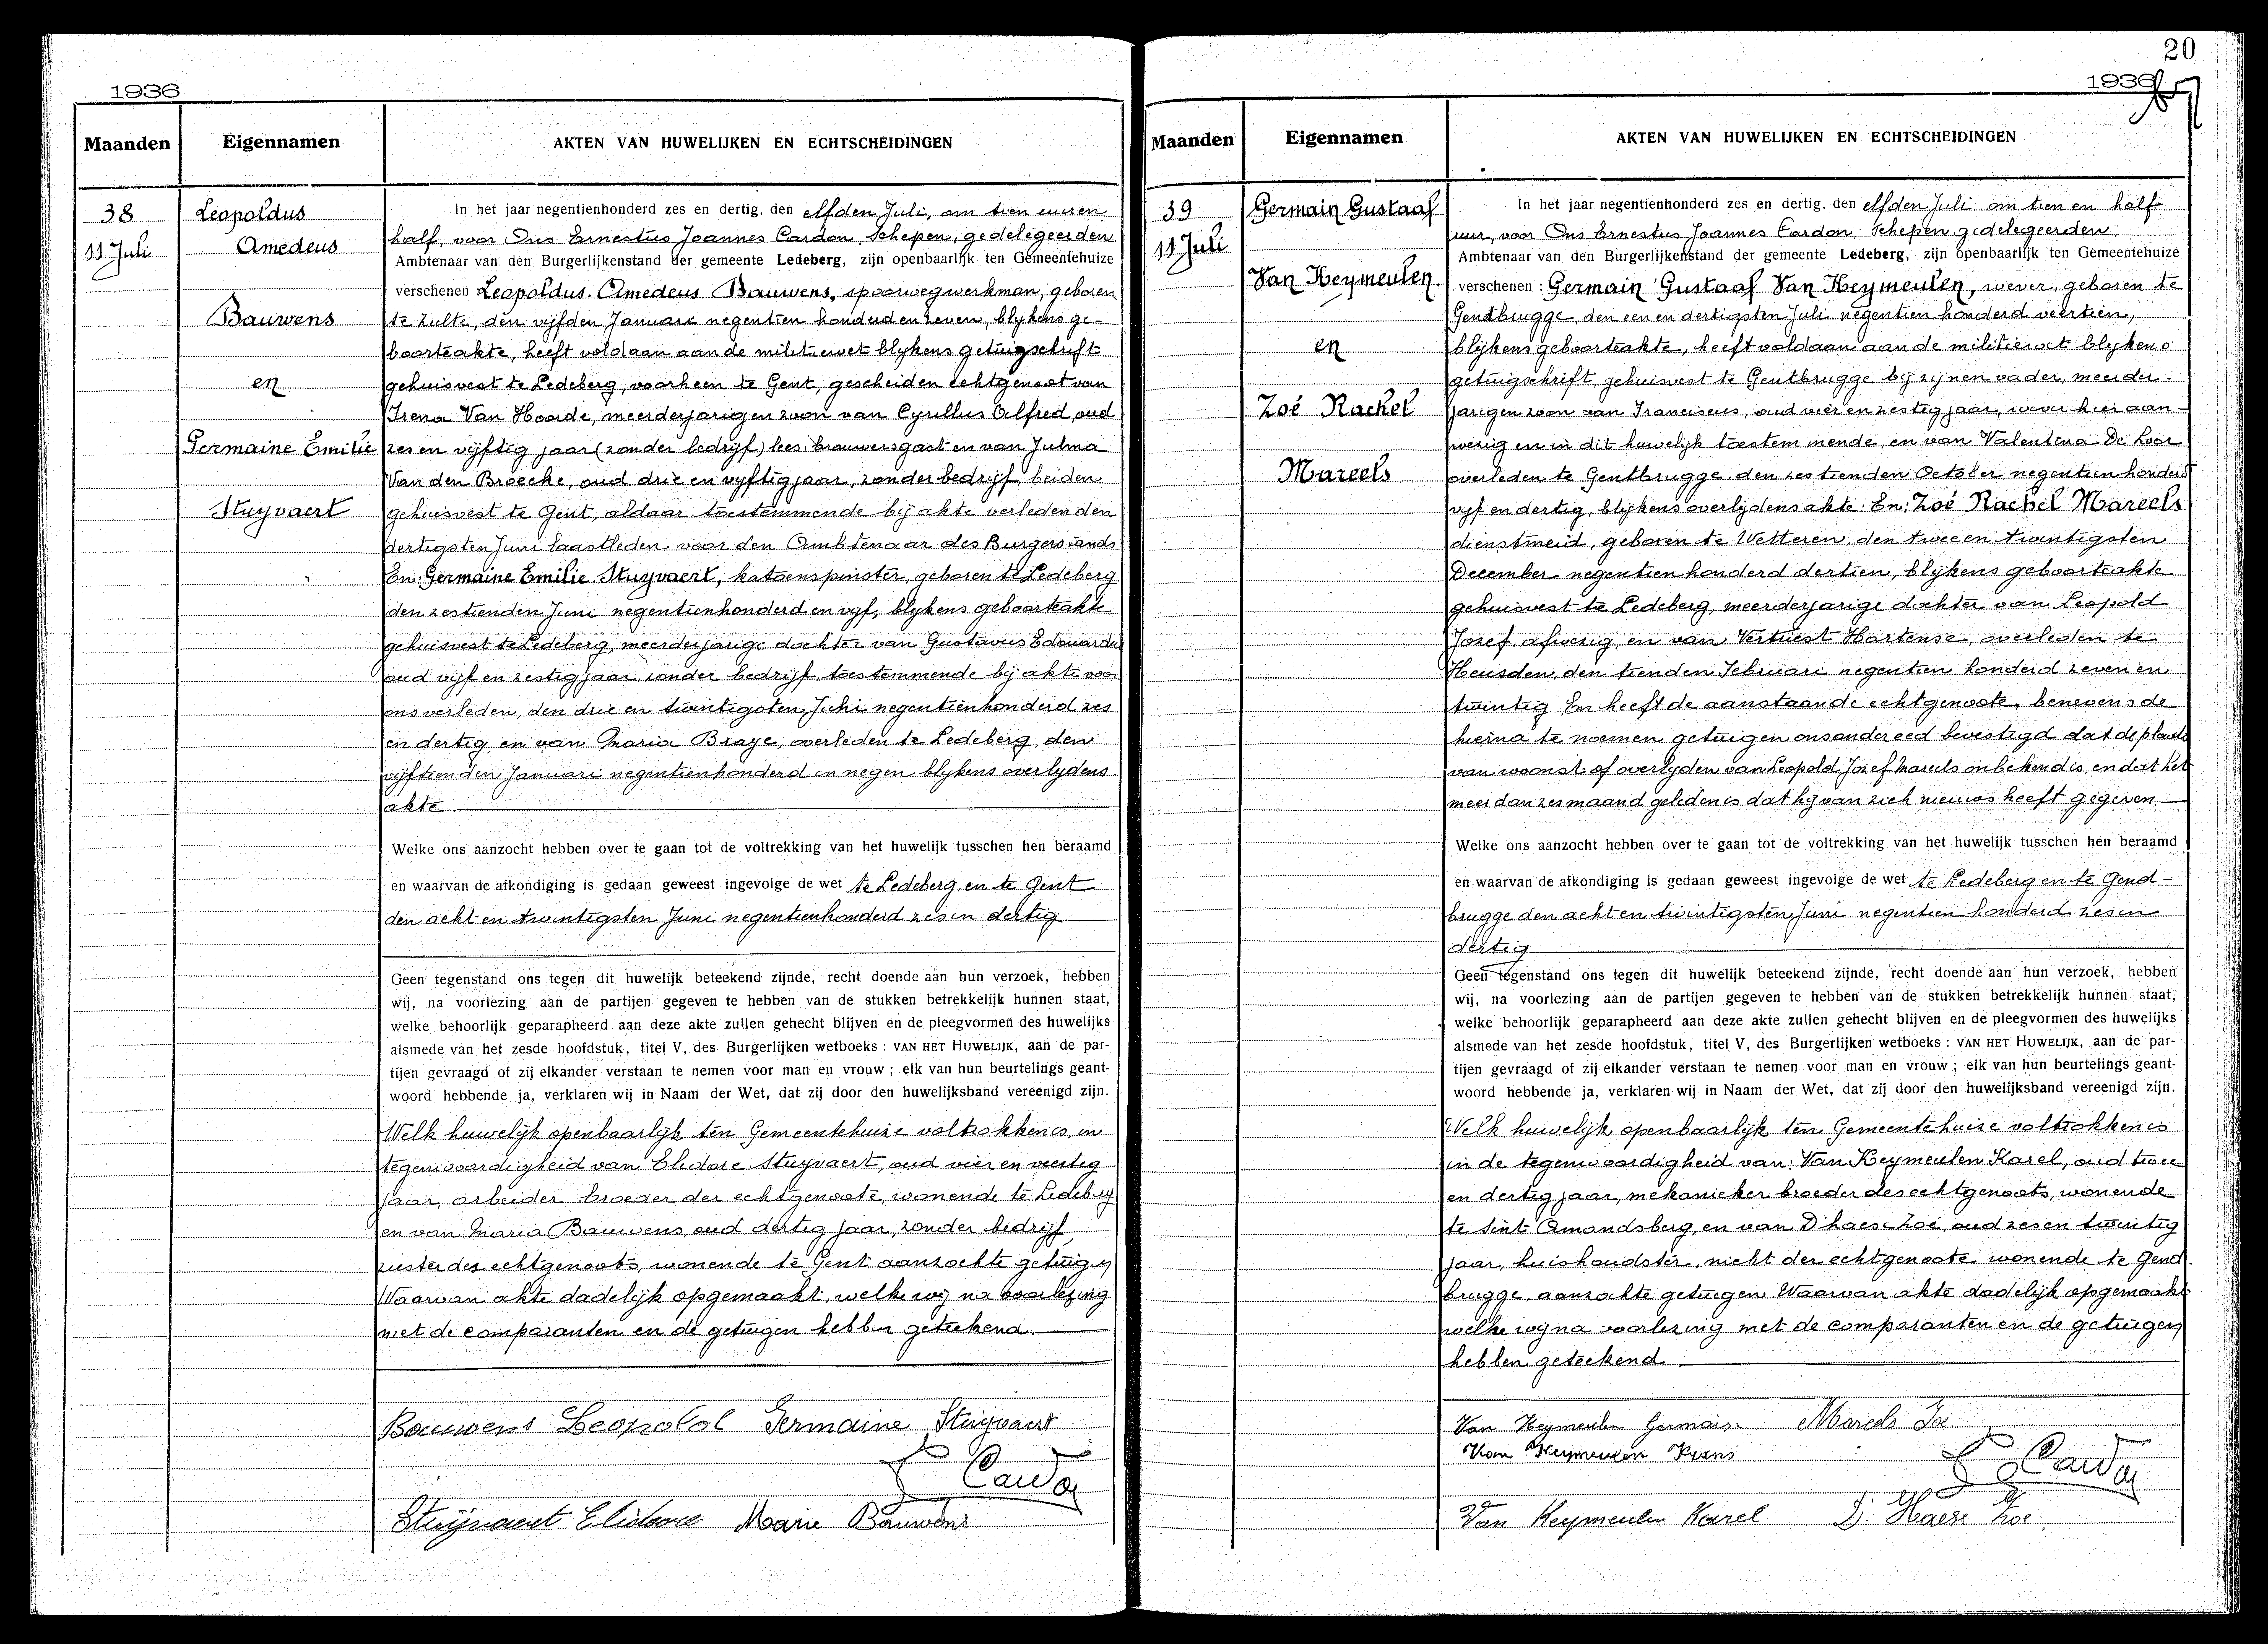 1936
Maanden
Eigennamen
AKTEN VAN HUWELIJKEN EN ECHTSCHEIDINGEN
38
11 Juli
Leopoldus
Amedeus
Bauwens
en
Germaine Emilie
Stuyvaert
In het jaar negentienhonderd zes en dertig, den elfden Juli, om tien uuren
half, voor Ons Ernestus Joannes Cardon, Schepen, gedelegeerden
Ambtenaar van den Burgerlijkenstand der gemeente Ledeberg, zijn openbaarlijk ten Gemeentehuize
verschenen Leopoldus Amedeus Bauwens, spoorwegwerkman, geboren
te Zulte, den vijfden Januari negentien honderd en zeven, blykens ge-
boorteakte, heeft voldaan aan de militiewet blykens getuigschrift
gehuisvest te Ledeberg, voorheen te Gent, gescheiden echtgenoot van
Irena Van Hoorde, meerderjarigen zoon van Cyrillus Alfred, oud
zes en vijftig jaar (zonder bedrijf) lees: brouwersgast en van Julma
Van den Broecke, oud drie en vyftig jaar, zonder bedrijf, beiden
gehuisvest te Gent, aldaar toestemmende bij akte verleden den
dertigsten Juni laastleden voor den Ambtenaar des Burgerstands
En: Germaine Emilie Stuyvaert, katoenspinster, geboren te Ledeberg
den zestienden Juni negentienhonderd en vyf, blykens geboorteakte
gehuisvest te Ledeberg, meerderjarige dochter van Gustavus Edouardus
oud vijf en zestig jaar, zonder bedrijf, toestemmende bij akte voor
ons verleden, den drie en twintigsten Juni negentienhonderd zes
en dertig en van Maria Braye, overleden te Ledeberg, den
vijftienden Januari negentienhonderd en negen blykens overlydens
akte
Welke ons aanzocht hebben over te gaan tot de voltrekking van het huwelijk tusschen hen beraamd
en waarvan de afkondiging is gedaan geweest ingevolge de wet te Ledeberg en te Gent
den acht en twintigsten Juni negentienhonderd zes en dertig
Geen tegenstand ons tegen dit huwelijk beteekend zijnde, recht doende aan hun verzoek, hebben
wij, na voorlezing aan de partijen gegeven te hebben van de stukken betrekkelijk hunnen staat,
welke behoorlijk geparapheerd aan deze akte zullen gehecht blijven en de pleegvormen des huwelijks
alsmede van het zesde hoofdstuk, titel V, des Burgerlijken wetboeks : VAN HET HUWELIJK, aan de par-
tijen gevraagd of zij elkander verstaan te nemen voor man en vrouw ; elk van hun beurtelings geant-
woord hebbende ja, verklaren wij in Naam der Wet, dat zij door den huwelijksband vereenigd zijn.
Welk huwelijk openbaarlijk ten Gemeentehuize voltrokken is, in
tegenwoordigheid van Elidore Stuyvaert, oud vier en veertig
jaar, arbeider broeder der echtgenoote, wonende te Ledeberg
en van Maria Bauwens, oud dertig jaar, zonder bedrijf
zuster des echtgenoots, wonende te Gent aanzochte getuigen
Waarvan akte dadelijk opgemaakt, welke wij na voorlezing
met de comparanten en de getuigen hebben geteekend.
Bauwens Leopold Germaine Stuyvaert
E Cardon
Stuyvaert Elidore Marie Bauwens
20
1936
Maanden
Eigennamen
AKTEN VAN HUWELIJKEN EN ECHTSCHEIDINGEN
39
11 Juli
Germain Gustaaf
Van Keymeulen
en
Zoé Rachel
Mareels
In het jaar negentienhonderd zes en dertig, den elfden Juli om tien en half
uur, voor Ons Ernestus Joannes Cardon, Schepen gedelegeerden
Ambtenaar van den Burgerlijkenstand der gemeente Ledeberg, zijn openbaarlijk ten Gemeentehuize
verschenen : Germain Gustaaf Van Keymeulen, wever, geboren te
Gentbrugge, den een en dertigsten Juli negentien honderd veertien,
blijkens geboorteakte, heeft voldaan aan de militiewet blykens
getuigschrift, gehuisvest te Gentbrugge bij zijnen vader, meerder-
jarigen zoon van Franciscus, oud vier en zestig jaar, wever hier aan-
wezig en in dit huwelijk toestemmende, en van Valentina De Loor
overleden te Gentbrugge den zestienden October negentien honderd
vyf en dertig, blijkens overlydens akte. En: Zoé Rachel Mareels
dienstmeid, geboren te Wetteren, den twee en twintigsten
December negentien honderd dertien, blijkens geboorteakte
gehuisvest te Ledeberg, meerderjarige dochter van Leopold
Jozef afwezig, en van Vertriest Hortense, overleden te
Heusden, den tienden Februari negentien honderd zeven en
twintig En heeft de aanstaande echtgenoote, benevens de
hierna te noemen getuigen ons onder eed bevestigd dat de plaats
van woonst of overlyden van Leopold Jozef Mareels onbekend is, en dat het
meer dan zes maand geleden is dat hij van zich nieuws heeft gegeven
Welke ons aanzocht hebben over te gaan tot de voltrekking van het huwelijk tusschen hen beraamd
en waarvan de afkondiging is gedaan geweest ingevolge de wet te Ledeberg en te Gend-
brugge den acht en twintigsten Juni negentien honderd zes en
dertig
Geen tegenstand ons tegen dit huwelijk beteekend zijnde, recht doende aan hun verzoek, hebben
wij, na voorlezing aan de partijen gegeven te hebben van de stukken betrekkelijk hunnen staat,
welke behoorlijk geparapheerd aan deze akte zullen gehecht blijven en de pleegvormen des huwelijks
alsmede van het zesde hoofdstuk, titel V, des Burgerlijken wetboeks : VAN HET HUWELIJK, aan de par-
tijen gevraagd of zij elkander verstaan te nemen voor man en vrouw ; elk van hun beurtelings geant-
woord hebbende ja, verklaren wij in Naam der Wet, dat zij door den huwelijksband vereenigd zijn.
Welk huwelijk openbaarlijk ten Gemeentehuize voltrokken is
in de tegenwoordigheid van: Van Keymeulen Karel, oud twee
en dertig jaar, mekanieker broeder des echtgenoots, wonende
te Sint Amandsberg, en van D'haese Zoé, oud zes en twintig
jaar, huishoudster, nicht der echtgenoote wonende te Gend
brugge, aanzochte getuigen Waarvan akte dadelijk opgemaakt
welke wy na voorlezing met de comparanten en de getuigen
hebben geteekend
Van Keymeulen Germain Mareels Zoé
Van Keymeulen Frans
E Cardon
Van Keymeulen Karel D'Haese Zoé